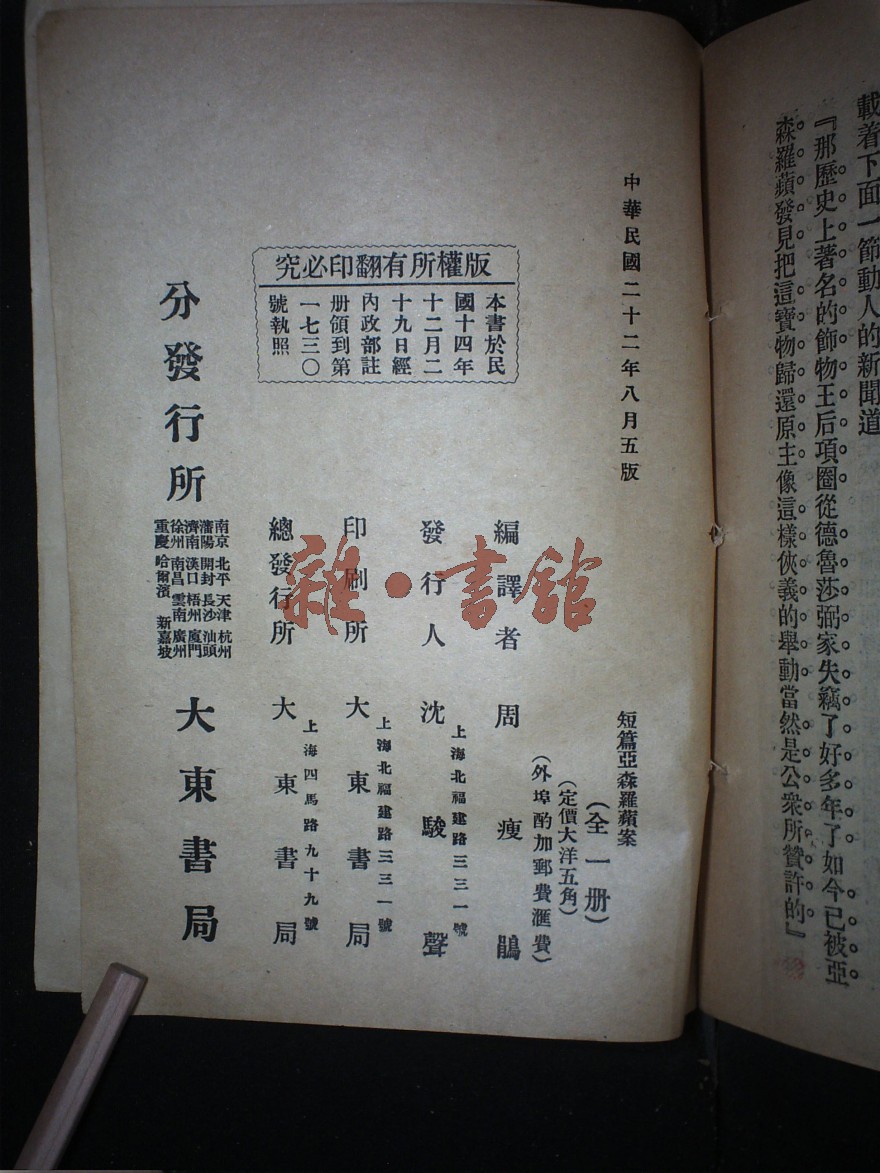 載着下面一節動人的新聞道
『那歷史上著名的飾物王后項圈從德魯莎弼家失竊了好多年了如今已被亞
森羅蘋發見把這寶物歸還原主像這樣俠義的舉動當然是公衆所贊許的』
中華民國二十二年八月五版
短篇亞森羅蘋案
(全一册)
(定價大洋五角)
(外埠酌加郵費滙費)
版權所有翻印必究
本書於民
國十四年
十二月二
十九日經
內政部註
册領到第
一七三〇
號執照
編譯者 周瘦鵑
發行人 沈駿聲
上海北福建路三三一號
印刷所 大東書局
上海北福建路三三一號
總發行所 大東書局
上海四馬路九十九號
分發行所 大東書局
南京 北平 天津 杭州
瀋陽 開封 長沙 汕頭
濟南 漢口 梧州 廈門
徐州 南昌 雲南 廣州
重慶 哈爾濱 新嘉坡
雜·書館